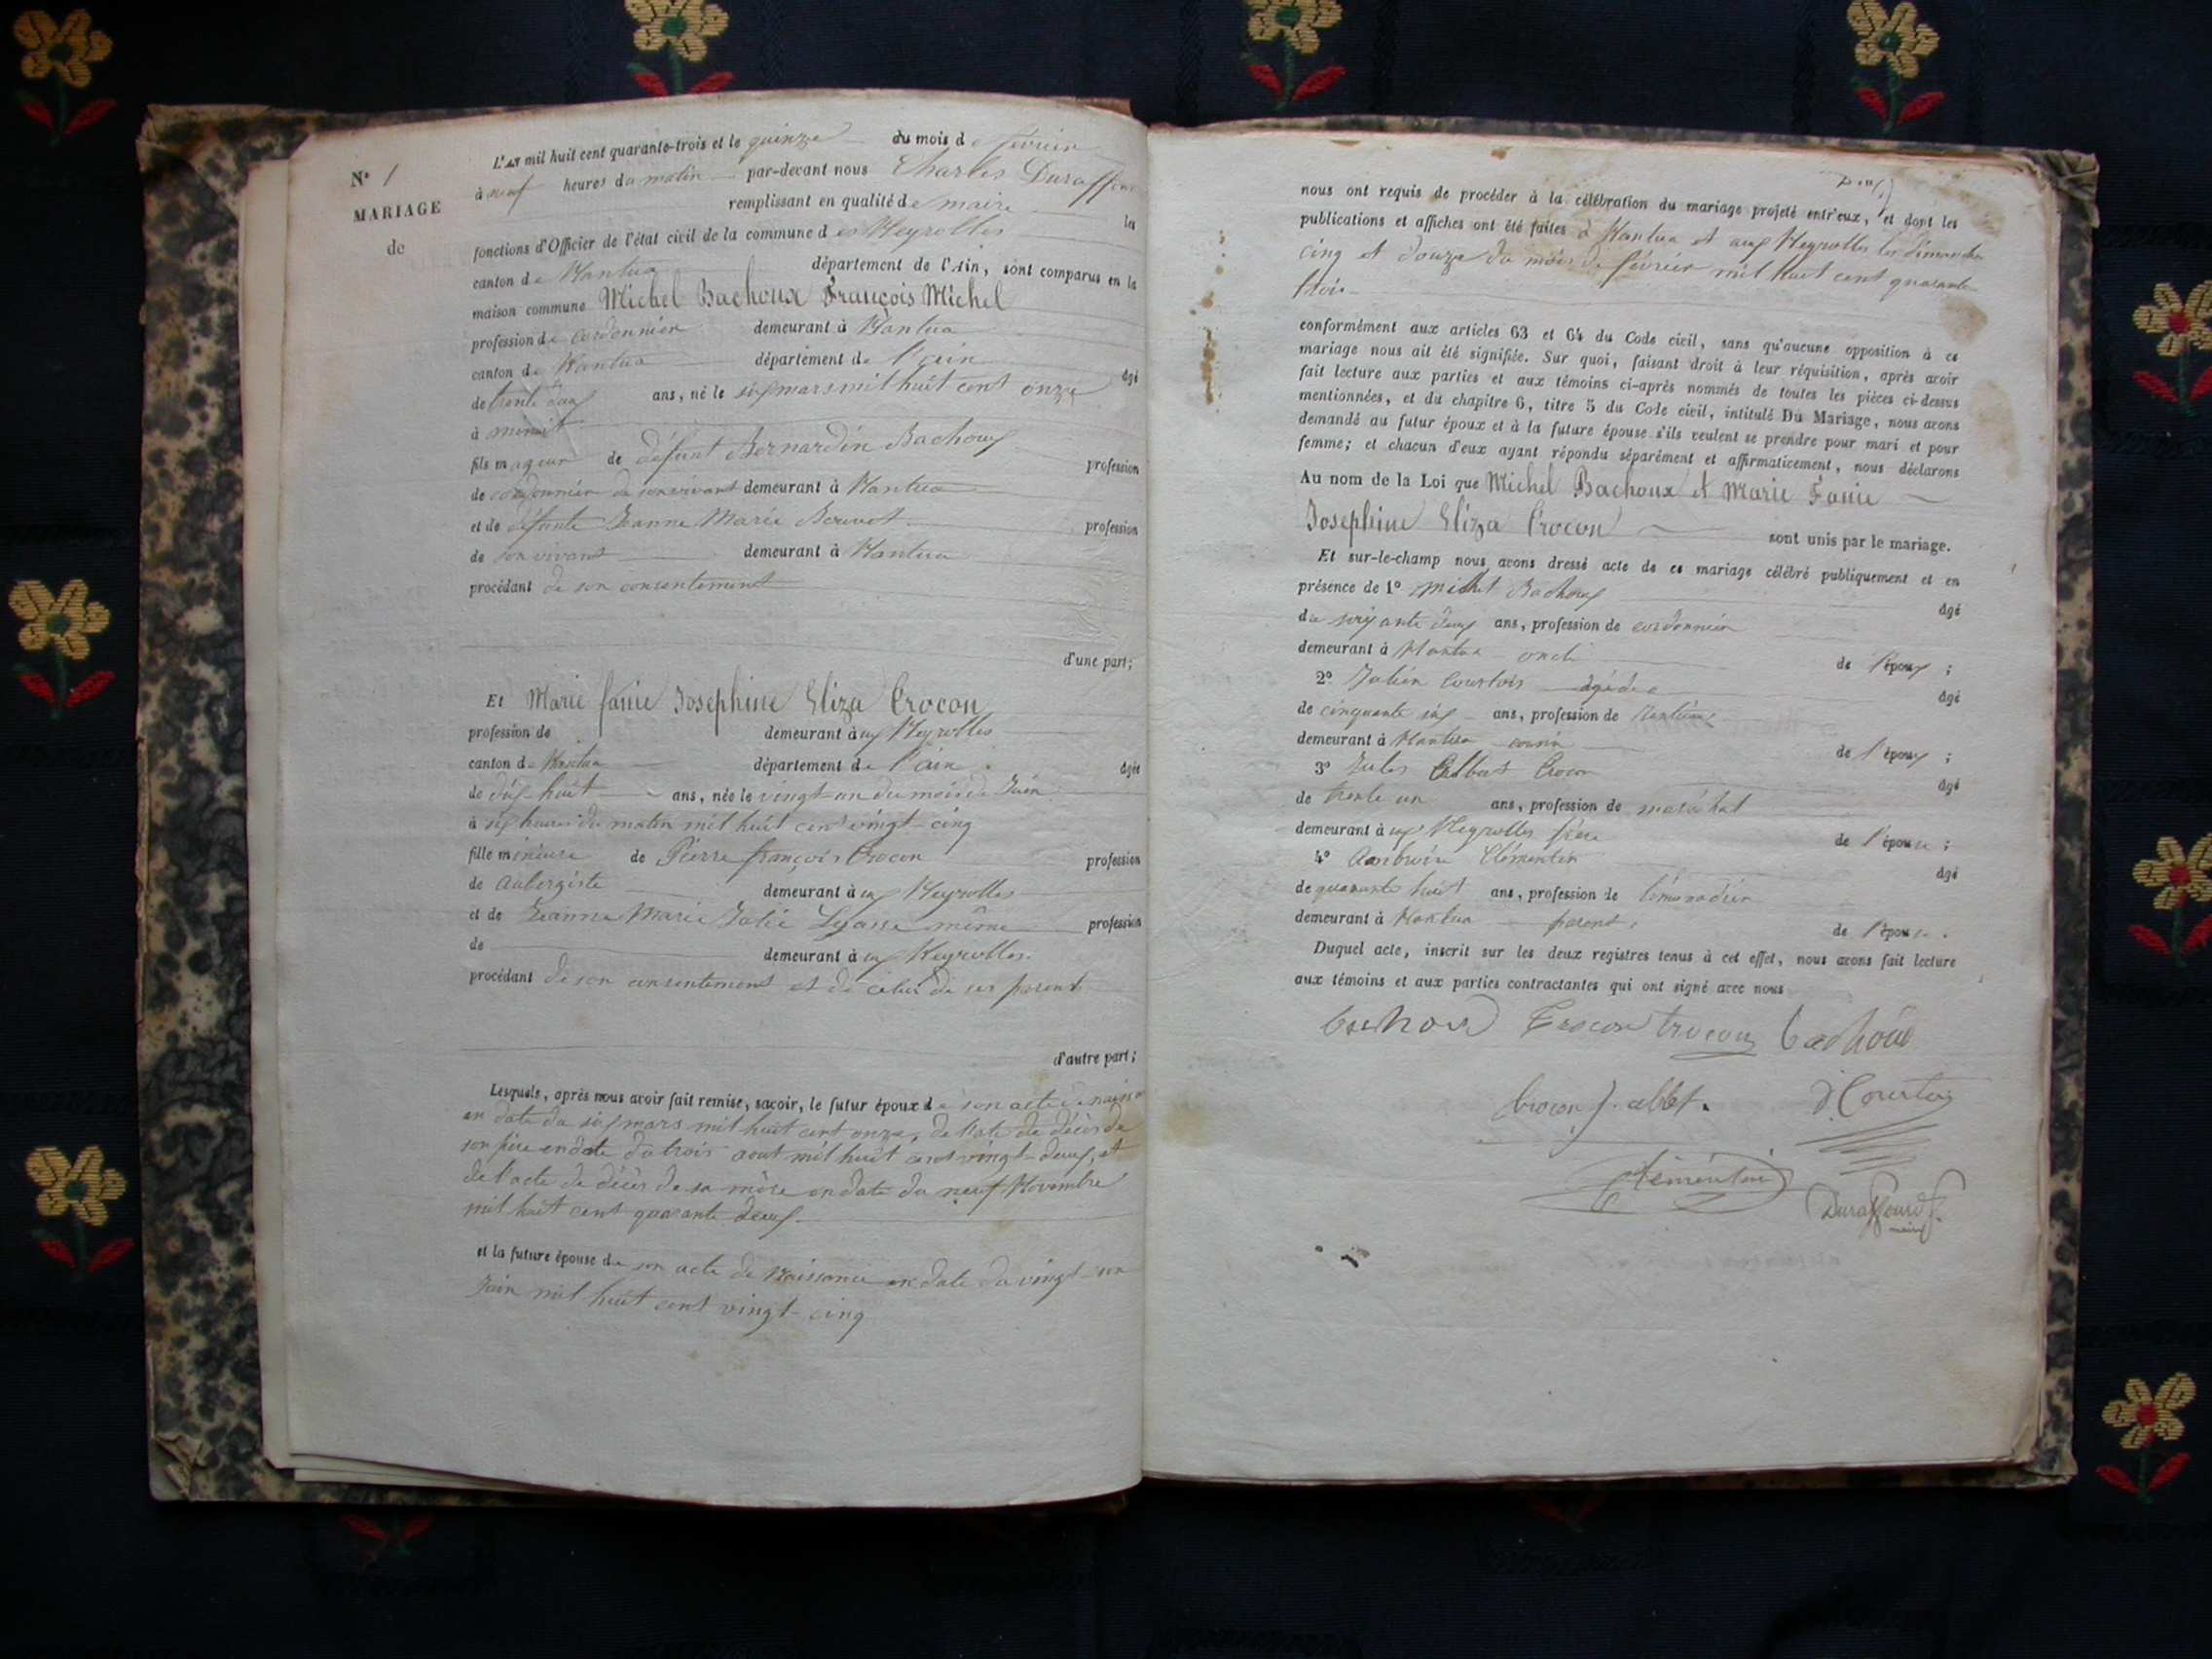 N° 1
MARIAGE
de
L'AN mil huit cent quarante-trois et le quinze du mois de février
à neuf heures du matin par-devant nous Charles Duraffour
remplissant en qualité de maire les
fonctions d'Officier de l'état civil de la commune des Neyrolles
canton de Nantua département de l'Ain, sont comparus en la
maison commune Michel Bachoux François Michel
profession de cordonnier demeurant à Nantua
canton de Nantua département de l'ain âgé
de trente deux ans, né le six mars mil huit cent onze
à minuit
fils mageur de défunt Bernardin Bachoux profession
de cordonnier de son vivant demeurant à Nantua
et de défunte Jeanne Marie profession
de son vivant demeurant à Nantua
procédant de son consentement
d'une part;
Et Marie fanie Josephine Eliza Crocon
profession de demeurant aux Neyrolles
canton de Nantua département de l'ain âgée
de dix-huit ans, née le vingt-un du mois de Juin
à six heures du matin mil huit cent vingt-cinq
fille mineure de Pierre françois Crocon profession
de aubergiste demeurant à ux Neyrolles
et de Jeanne Marie Julie même profession
de demeurant à ux Neyrolles.
procédant de son consentement et de celui de ses parents
d'autre part;
Lesquels, après nous avoir fait remise, savoir, le futur époux de son acte de naissance
en date du six mars mil huit cent onze, de l'acte de décès de
son père en date du trois aout mil huit cent vingt-deux, et
de l'acte de décès de sa mère en date du neuf Novembre
mil huit cent quarante deux
et la future épouse de son acte de Naissance en date du vingt-un
Juin mil huit cent vingt-cinq
nous ont requis de procéder à la célébration du mariage projeté entr'eux, et dont les
publications et affiches ont été faites à Nantua et aux Neyrolles les dimanches
cinq et douze du mois de février mil huit cent quarante
trois
conformément aux articles 63 et 64 du Code civil, sans qu'aucune opposition à ce
mariage nous ait été signifiée. Sur quoi, faisant droit à leur réquisition, après avoir
fait lecture aux parties et aux témoins ci-après nommés de toutes les pièces ci-dessus
mentionnées, et du chapitre 6, titre 5 du Code civil, intitulé Du Mariage, nous avons
demandé au futur époux et à la future épouse s'ils veulent se prendre pour mari et pour
femme; et chacun d'eux ayant répondu séparément et affirmativement, nous déclarons
Au nom de la Loi que Michel Bachoux et Marie Fanie
Josephine Eliza Crocon sont unis par le mariage.
Et sur-le-champ nous avons dressé acte de ce mariage célébré publiquement et en
présence de 1° Michel Bachoux âgé
de soixante deux ans, profession de cordonnier
demeurant à Nantua oncle de l'époux ;
2° Julien Courtois âgé
de cinquante six ans, profession de
demeurant à Nantua cousin de l'époux ;
3° Jules Albert Crocon âgé
de trente un ans, profession de maréchal
demeurant à ux Neyrolles frère de l'épouse ;
4° Clémentin âgé
de quarante huit ans, profession de limonadier
demeurant à Nantua parent de l'épouse.
Duquel acte, inscrit sur les deux registres tenus à cet effet, nous avons fait lecture
aux témoins et aux parties contractantes qui ont signé avec nous
bachoux Crocon bachoux
Crocon J. albert. J. Courtois
Clémentin
Duraffourd
maire